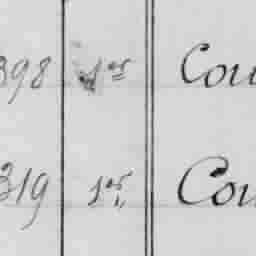 398 1er Cou
319 1er Cou